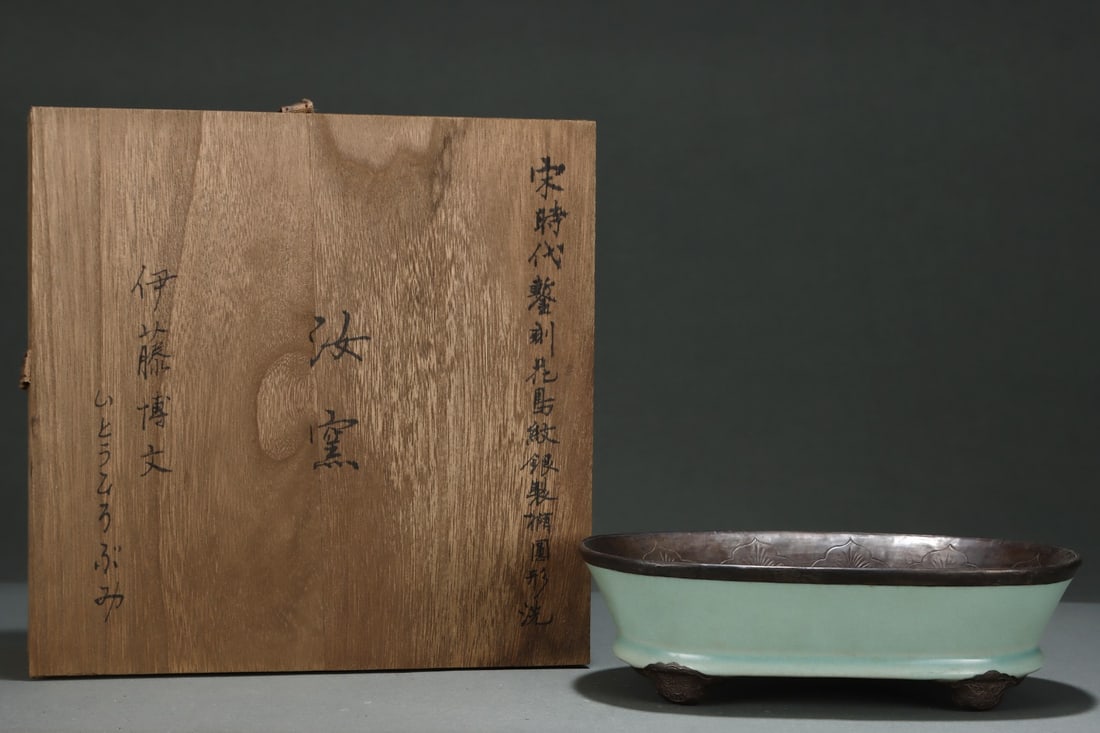 宋時代鏨刻花鳥紋銀製橢圓形洗
汝窯
伊藤博文
いとうひろぶみ